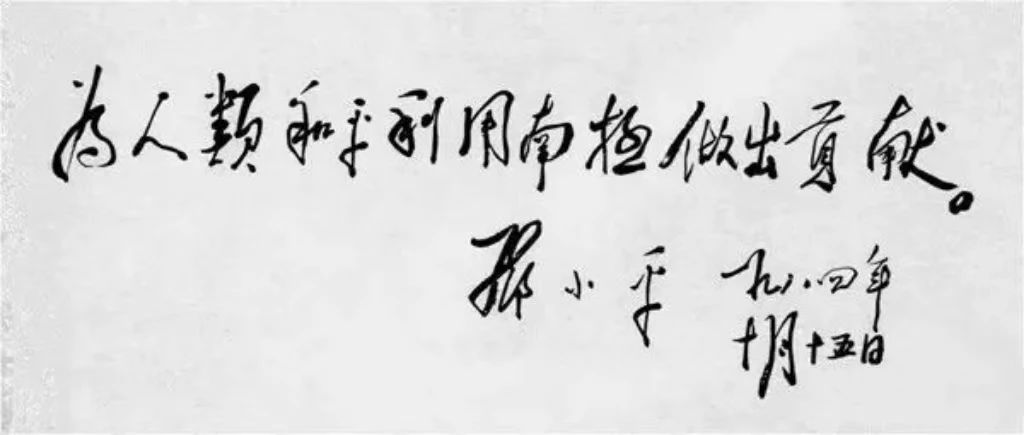 為人類和平利用南極做出貢献。
鄧小平 一九八四年
十月十五日